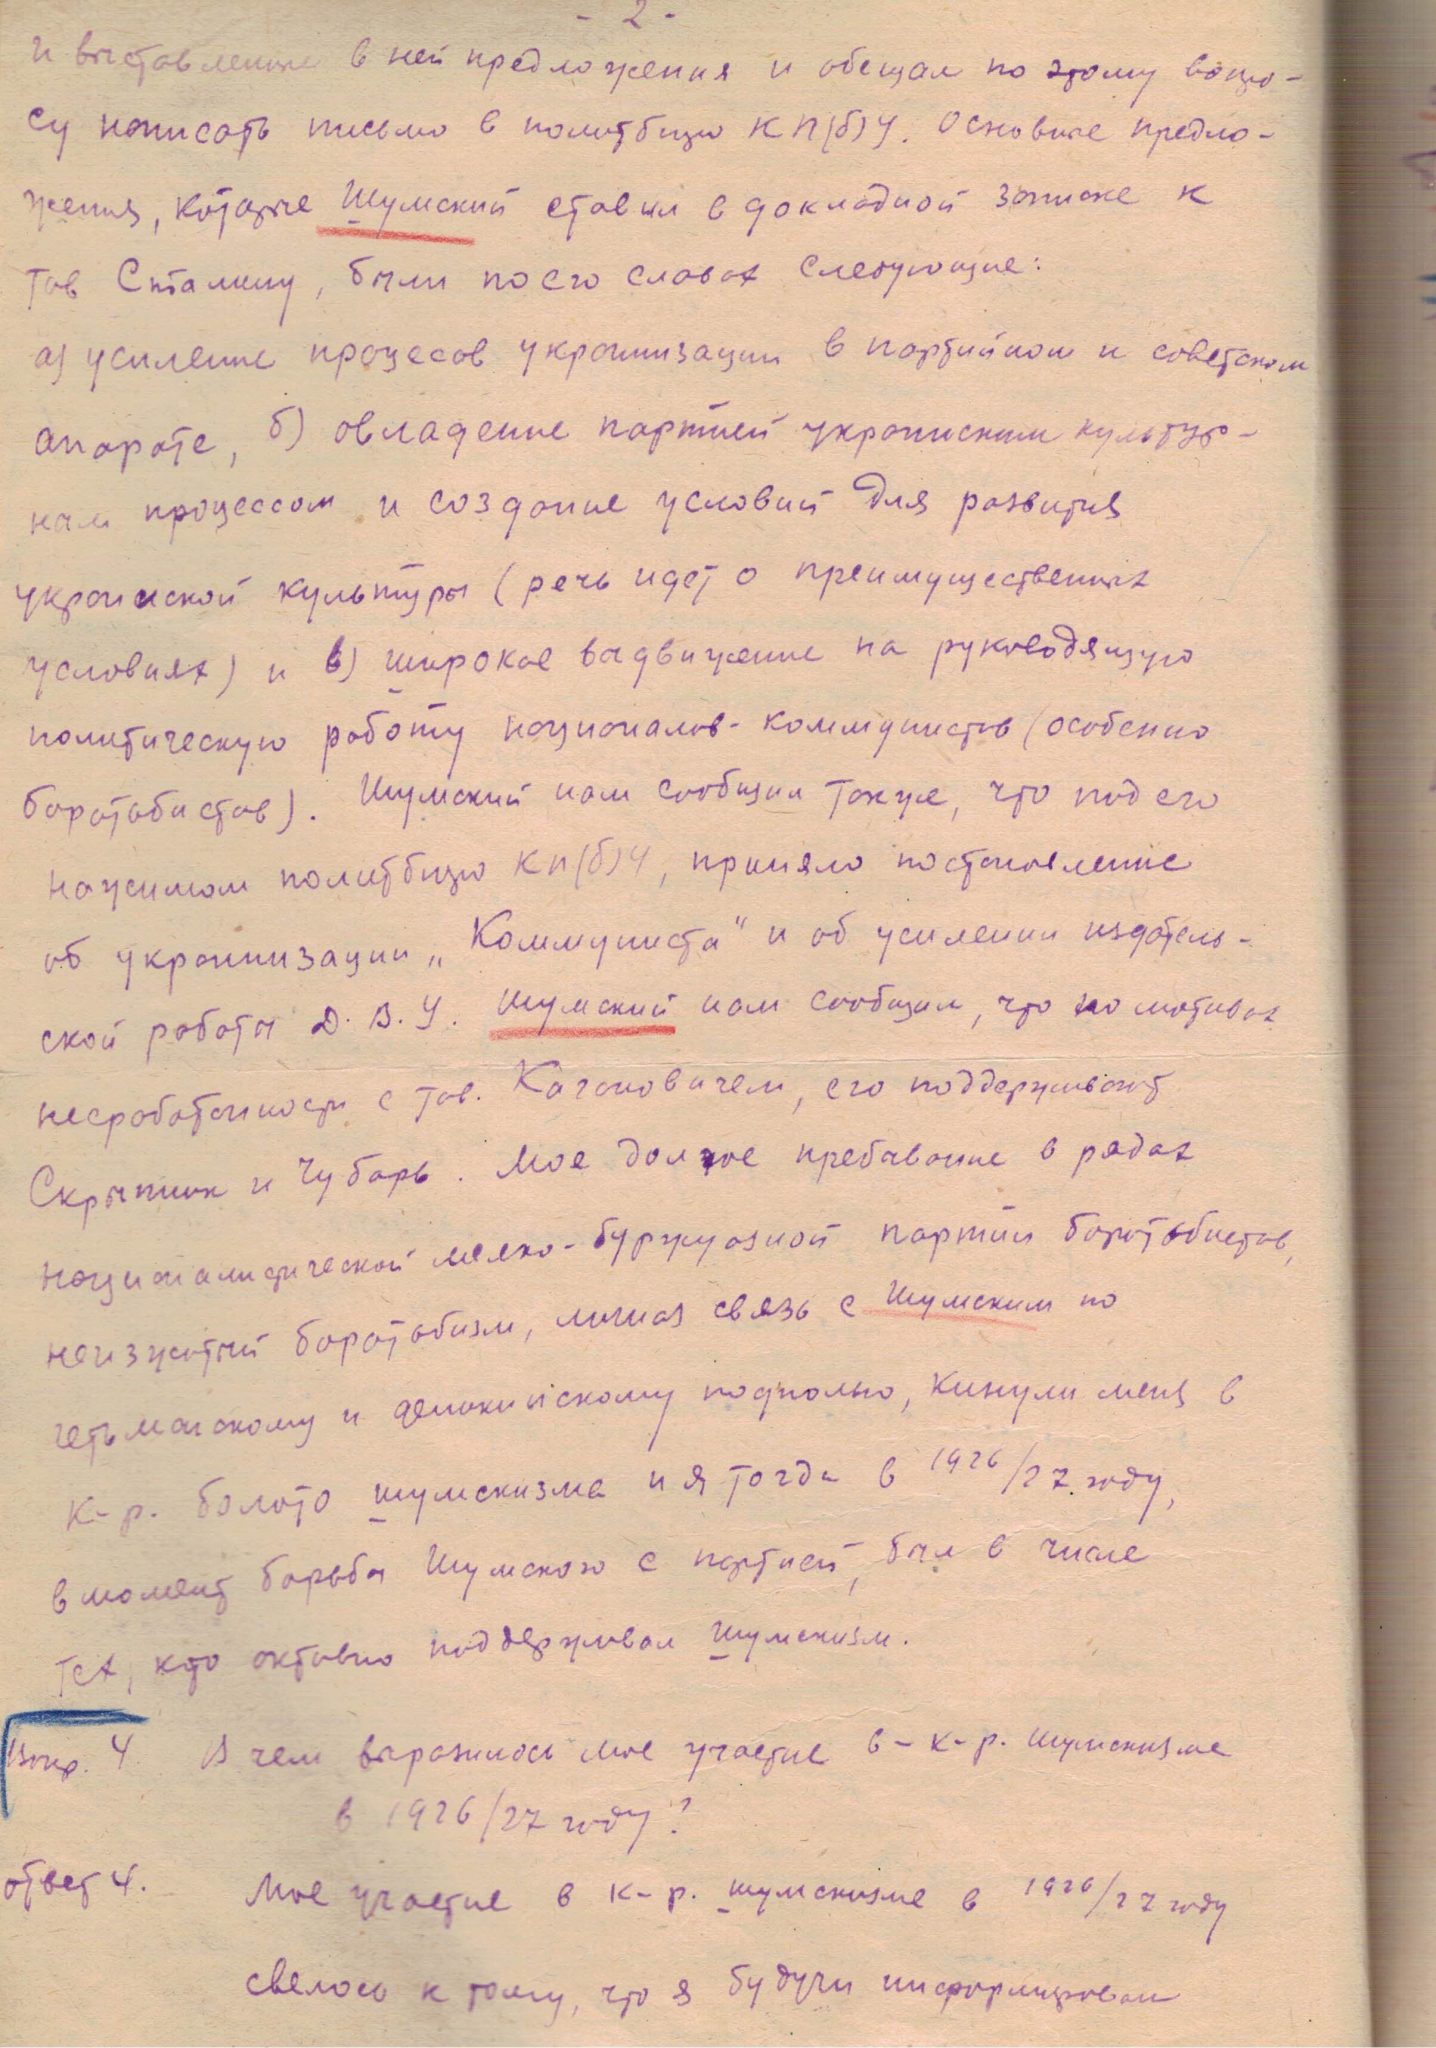 - 2 -
и выставленые в ней предложения и обещал по этому вопро-
су написать письмо в политбюро КП(б)У. Основные предло-
жения, которые Шумский ставил в докладной записке к
тов Сталину, были по его словах следующие:
а) усиление процесов украинизации в партийном и советском
апарате, б) овладение партией украинским культур-
ным процессом и создание условий для развития
украинской культуры (речь идет о преимущественных
условиях) и в) широкое выдвижение на руководящую
политическую работу националов-коммунистов (особенно
боротьбистов). Шумский нам сообщил также, что под его
нажимом политбюро КП(б)У, приняло постановление
об украинизации „Коммуниста" и об усилении издатель-
ской работы Д.В.У. Шумский нам сообщил, что по мотивах
несработанности с тов. Кагановичем, его поддерживают
Скрыпник и Чубарь. Мое долгое пребывание в рядах
националистической мелко-буржуазной партии боротьбистов,
неизжитый боротьбизм, личная связь с Шумским по
гетьманскому и деникинскому подполью, кинули меня в
к-р. болото шумскизма и я тогда в 1926/27 году,
в момент борьбы Шумского с партией, был в числе
тех, кто активно поддерживал шумскизм.
Вопр. 4 В чем выразилось мое участие в - к-р. шумскизме
в 1926/27 году?
Ответ 4. Мое участие в к-р. шумскизме в 1926/27 году
свелось к тому, что я будучи информирован